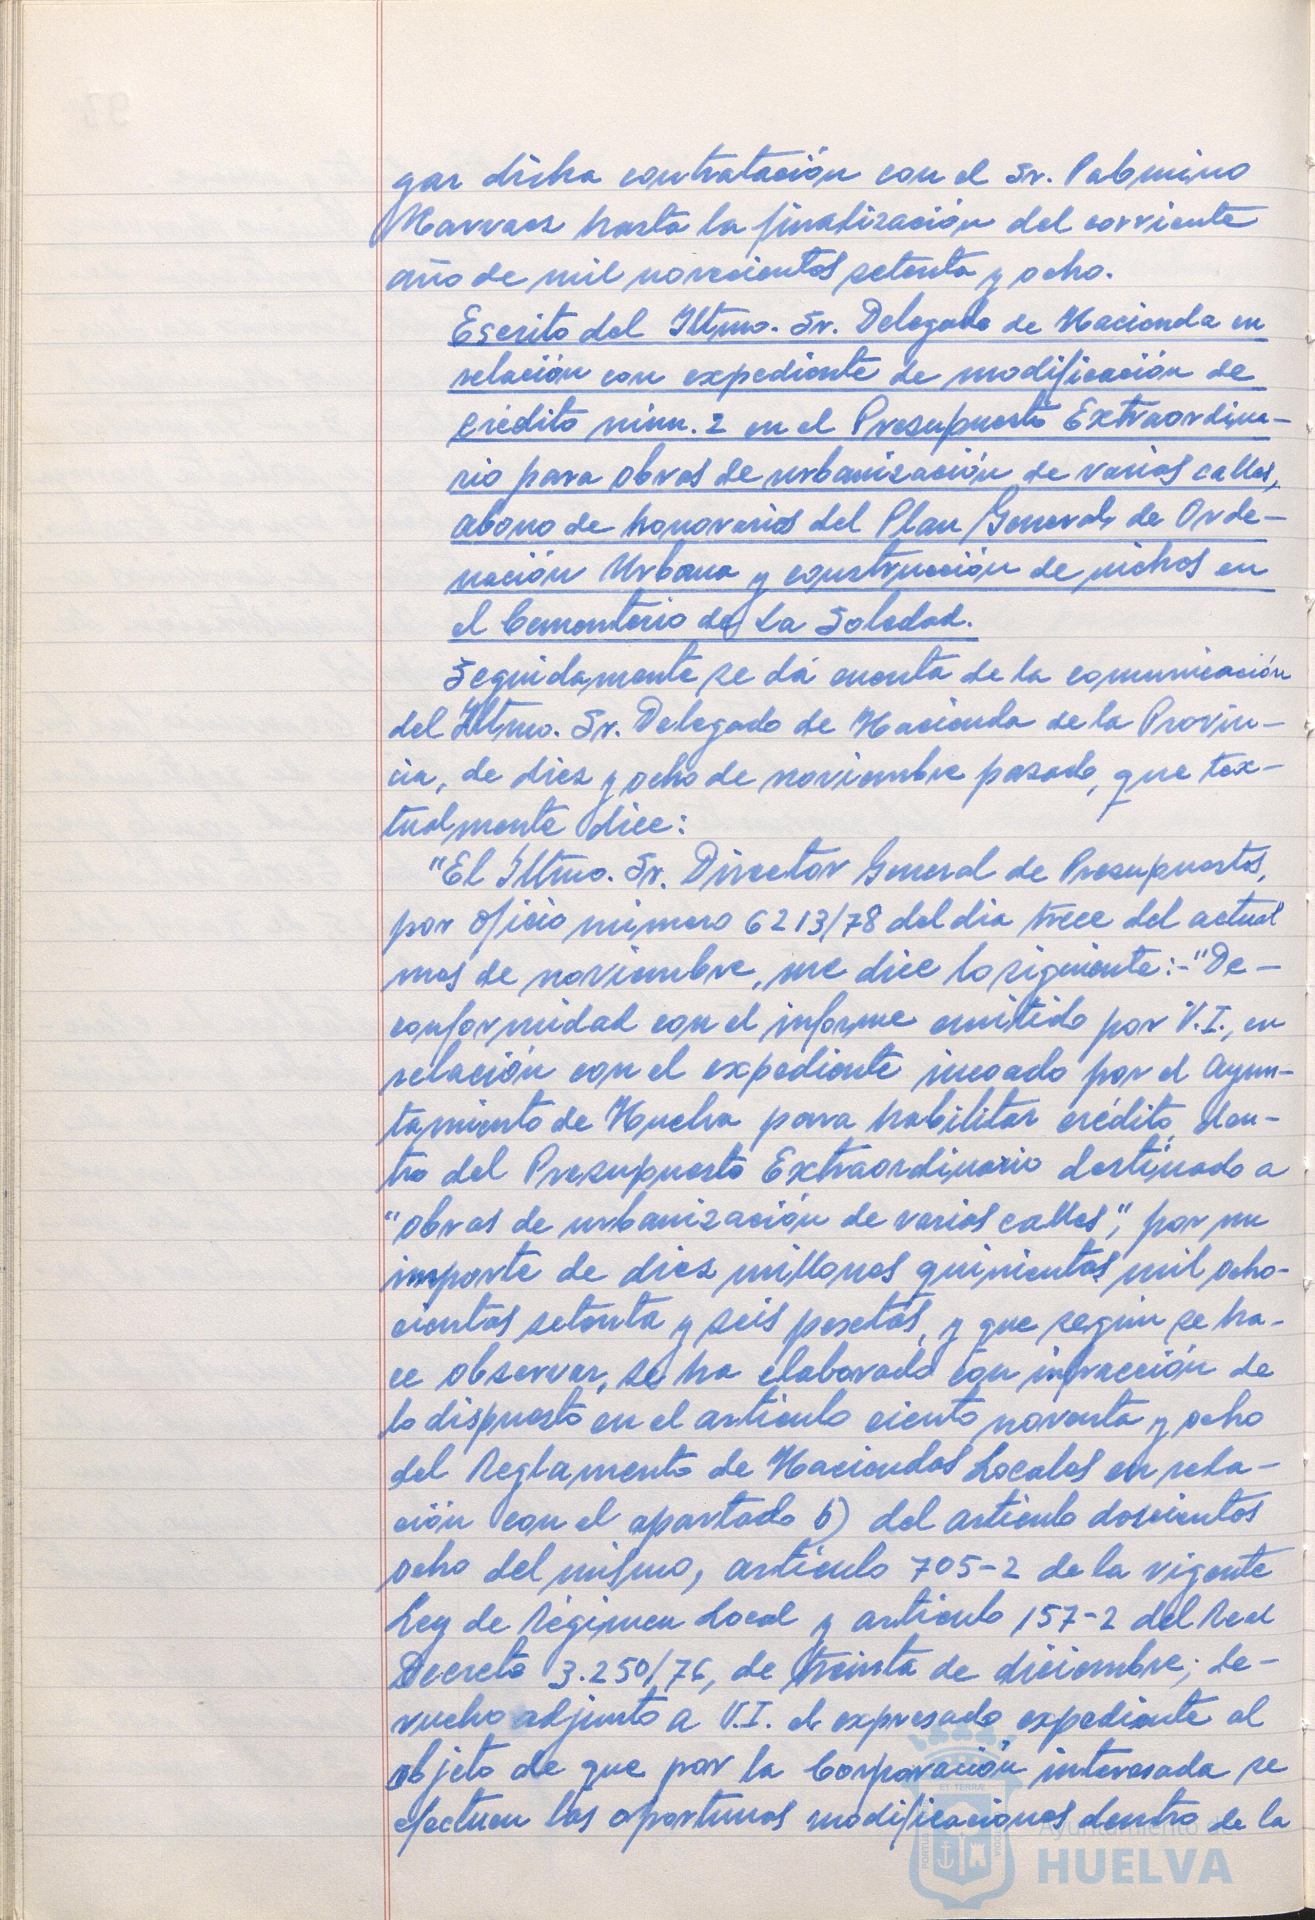 gar dicha contratación con el Sr. Palomino
Narvaez hasta la finalización del corriente
año de mil novecientos setenta y ocho.
Escrito del Iltmo. Sr. Delegado de Hacienda en
relación con expediente de modificación de
crédito núm. 2 en el Presupuesto Extraordina-
rio para obras de urbanización de varias calles,
abono de honorarios del Plan General de Orde-
nación Urbana y construcción de nichos en
el Cementerio de La Soledad.
Seguidamente se dá cuenta de la comunicación
del Iltmo. Sr. Delegado de Hacienda de la Provin-
cia, de diez y ocho de noviembre pasado, que tex-
tualmente dice:
"El Iltmo. Sr. Director General de Presupuestos,
por oficio número 6213/78 del dia trece del actual
mes de noviembre, me dice lo siguiente:-"De-
conformidad con el informe emitido por V.I., en
relación con el expediente incoado por el Ayun-
tamiento de Huelva para habilitar crédito, den-
tro del Presupuesto Extraordinario destinado a
"obras de urbanización de varias calles", por un
importe de diez millones quinientas mil ocho-
cientas setenta y seis pesetas, y que según se ha-
ce observar, se ha elaborado con infracción de
lo dispuesto en el artículo ciento noventa y ocho
del Reglamento de Haciendas Locales en rela-
ción con el apartado b) del artículo doscientos
ocho del mismo, artículo 705-2 de la vigente
Ley de Régimen Local y artículo 157-2 del Real
Decreto 3.250/76, de treinta de diciembre; de-
vuelvo adjunto a V.I. el expresado expediente al
objeto de que por la Corporación interesada se
efectuen las oportunas modificaciones dentro de la
Ayuntamiento de
HUELVA